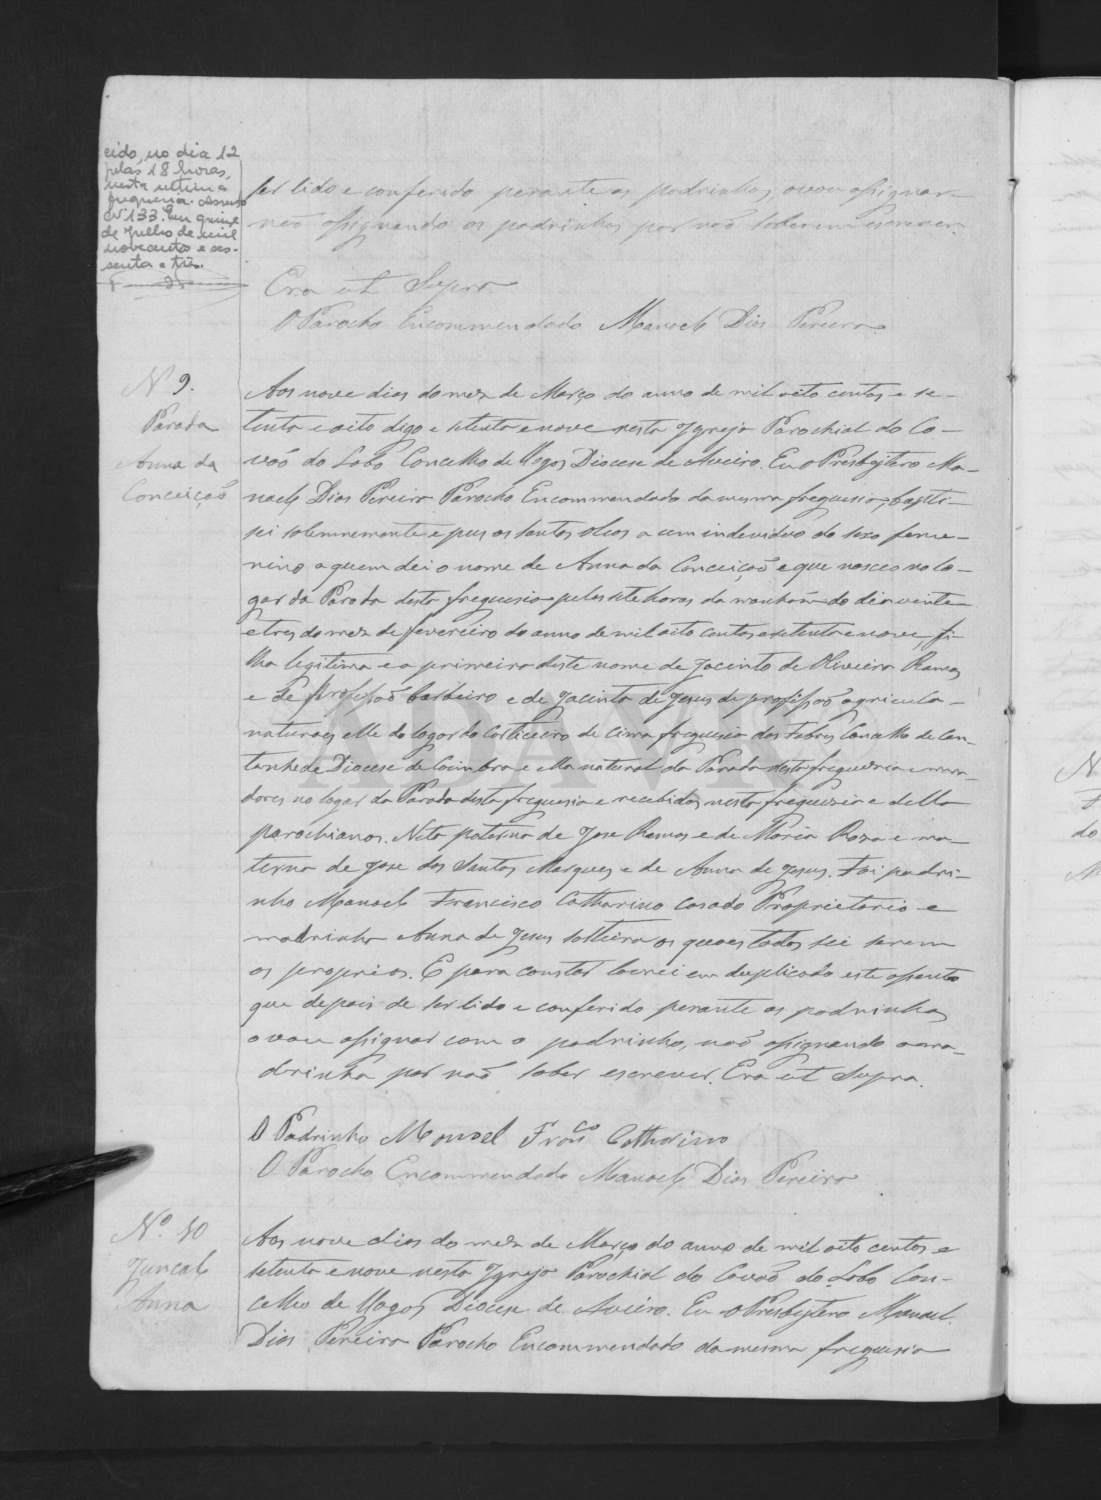 cido, no dia 12
pelas 18 horas,
nesta ultima
freguesia. Assento
Nº 133. Em quinze
de Julho de mil
novecentos e ses-
senta e três.
ser lido e conferido perante os padrinhos, o vou assignar
não assignando os padrinhos por não saberem escrever.
Era ut Supra
O Parocho Encommendado Manoel Dias Pereira
Nº 9.
Parada
Anna da
Conceição
Aos nove dias do mez de Março do anno de mil oito centos e se-
tenta e oito digo e setenta e nove nesta Igreja Parochial do Co-
vão do Lobo Concelho de Vagos Diocese de Aveiro. Eu o Presbytero Ma-
noel Dias Pereira Parocho Encommendado da mesma freguesia, bapti-
sei solemnemente e pus os santos oleos a um individuo do sexo feme-
nino a quem dei o nome de Anna da Conceição e que nasceo no lo-
gar da Parada desta freguesia pelas sete horas da manham do dia vinte
e tres do mez de fevereiro do anno de mil oito centos e setenta e nove, fi-
lha legitima e a primeira deste nome de Jacinto de Oliveira Ramos
e de profissão barbeiro e de Jacinta de Jesus de profissão agricula
naturaes elle do logar do Corticeiro de Cima freguesia dos Febres Concelho de Can-
tanhede Diocese de Coimbra e ella natural da Parada desta freguezia e mora-
dores no logar da Parada desta freguesia e recebidos nesta freguezia e della
parochianos. Neta paterna de Jose Ramos e de Maria Roza e ma-
terna de Jose dos Santos Marques e de Anna de Jesus. Foi padri-
nho Manoel Francisco Catharino casado Proprietario e
madrinha Anna de Jesus solteira os quaes todos sei serem
os proprios. E para constar lavrei em duplicado este assento
que depois de ser lido e conferido perante os padrinhos
o vou assignar com o padrinho, não assignando a ma-
drinha por não saber escrever. Era ut Supra.
O Padrinho Manoel Franco Catharino
O Parocho Encommendado Manoel Dias Pereira
Nº. 10
Juncal
Anna
Aos nove dias do mez de Março do anno de mil oito centos e
setenta e nove nesta Igreja Parochial do Covão do Lobo Con-
celho de Vagos Diocese de Aveiro. Eu o Presbytero Manoel
Dias Pereira Parocho Encommendado da mesma freguesia